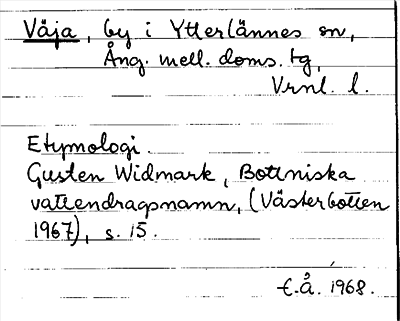 Väja, by i Ytterlännes sn,
Ång. mell. doms. tg,
Vrnl. l.
Etymologi.
Gusten Widmark, Bottniska
vattendragsnamn, (Västerbotten
1967), s. 15.
£.Å. 1968.